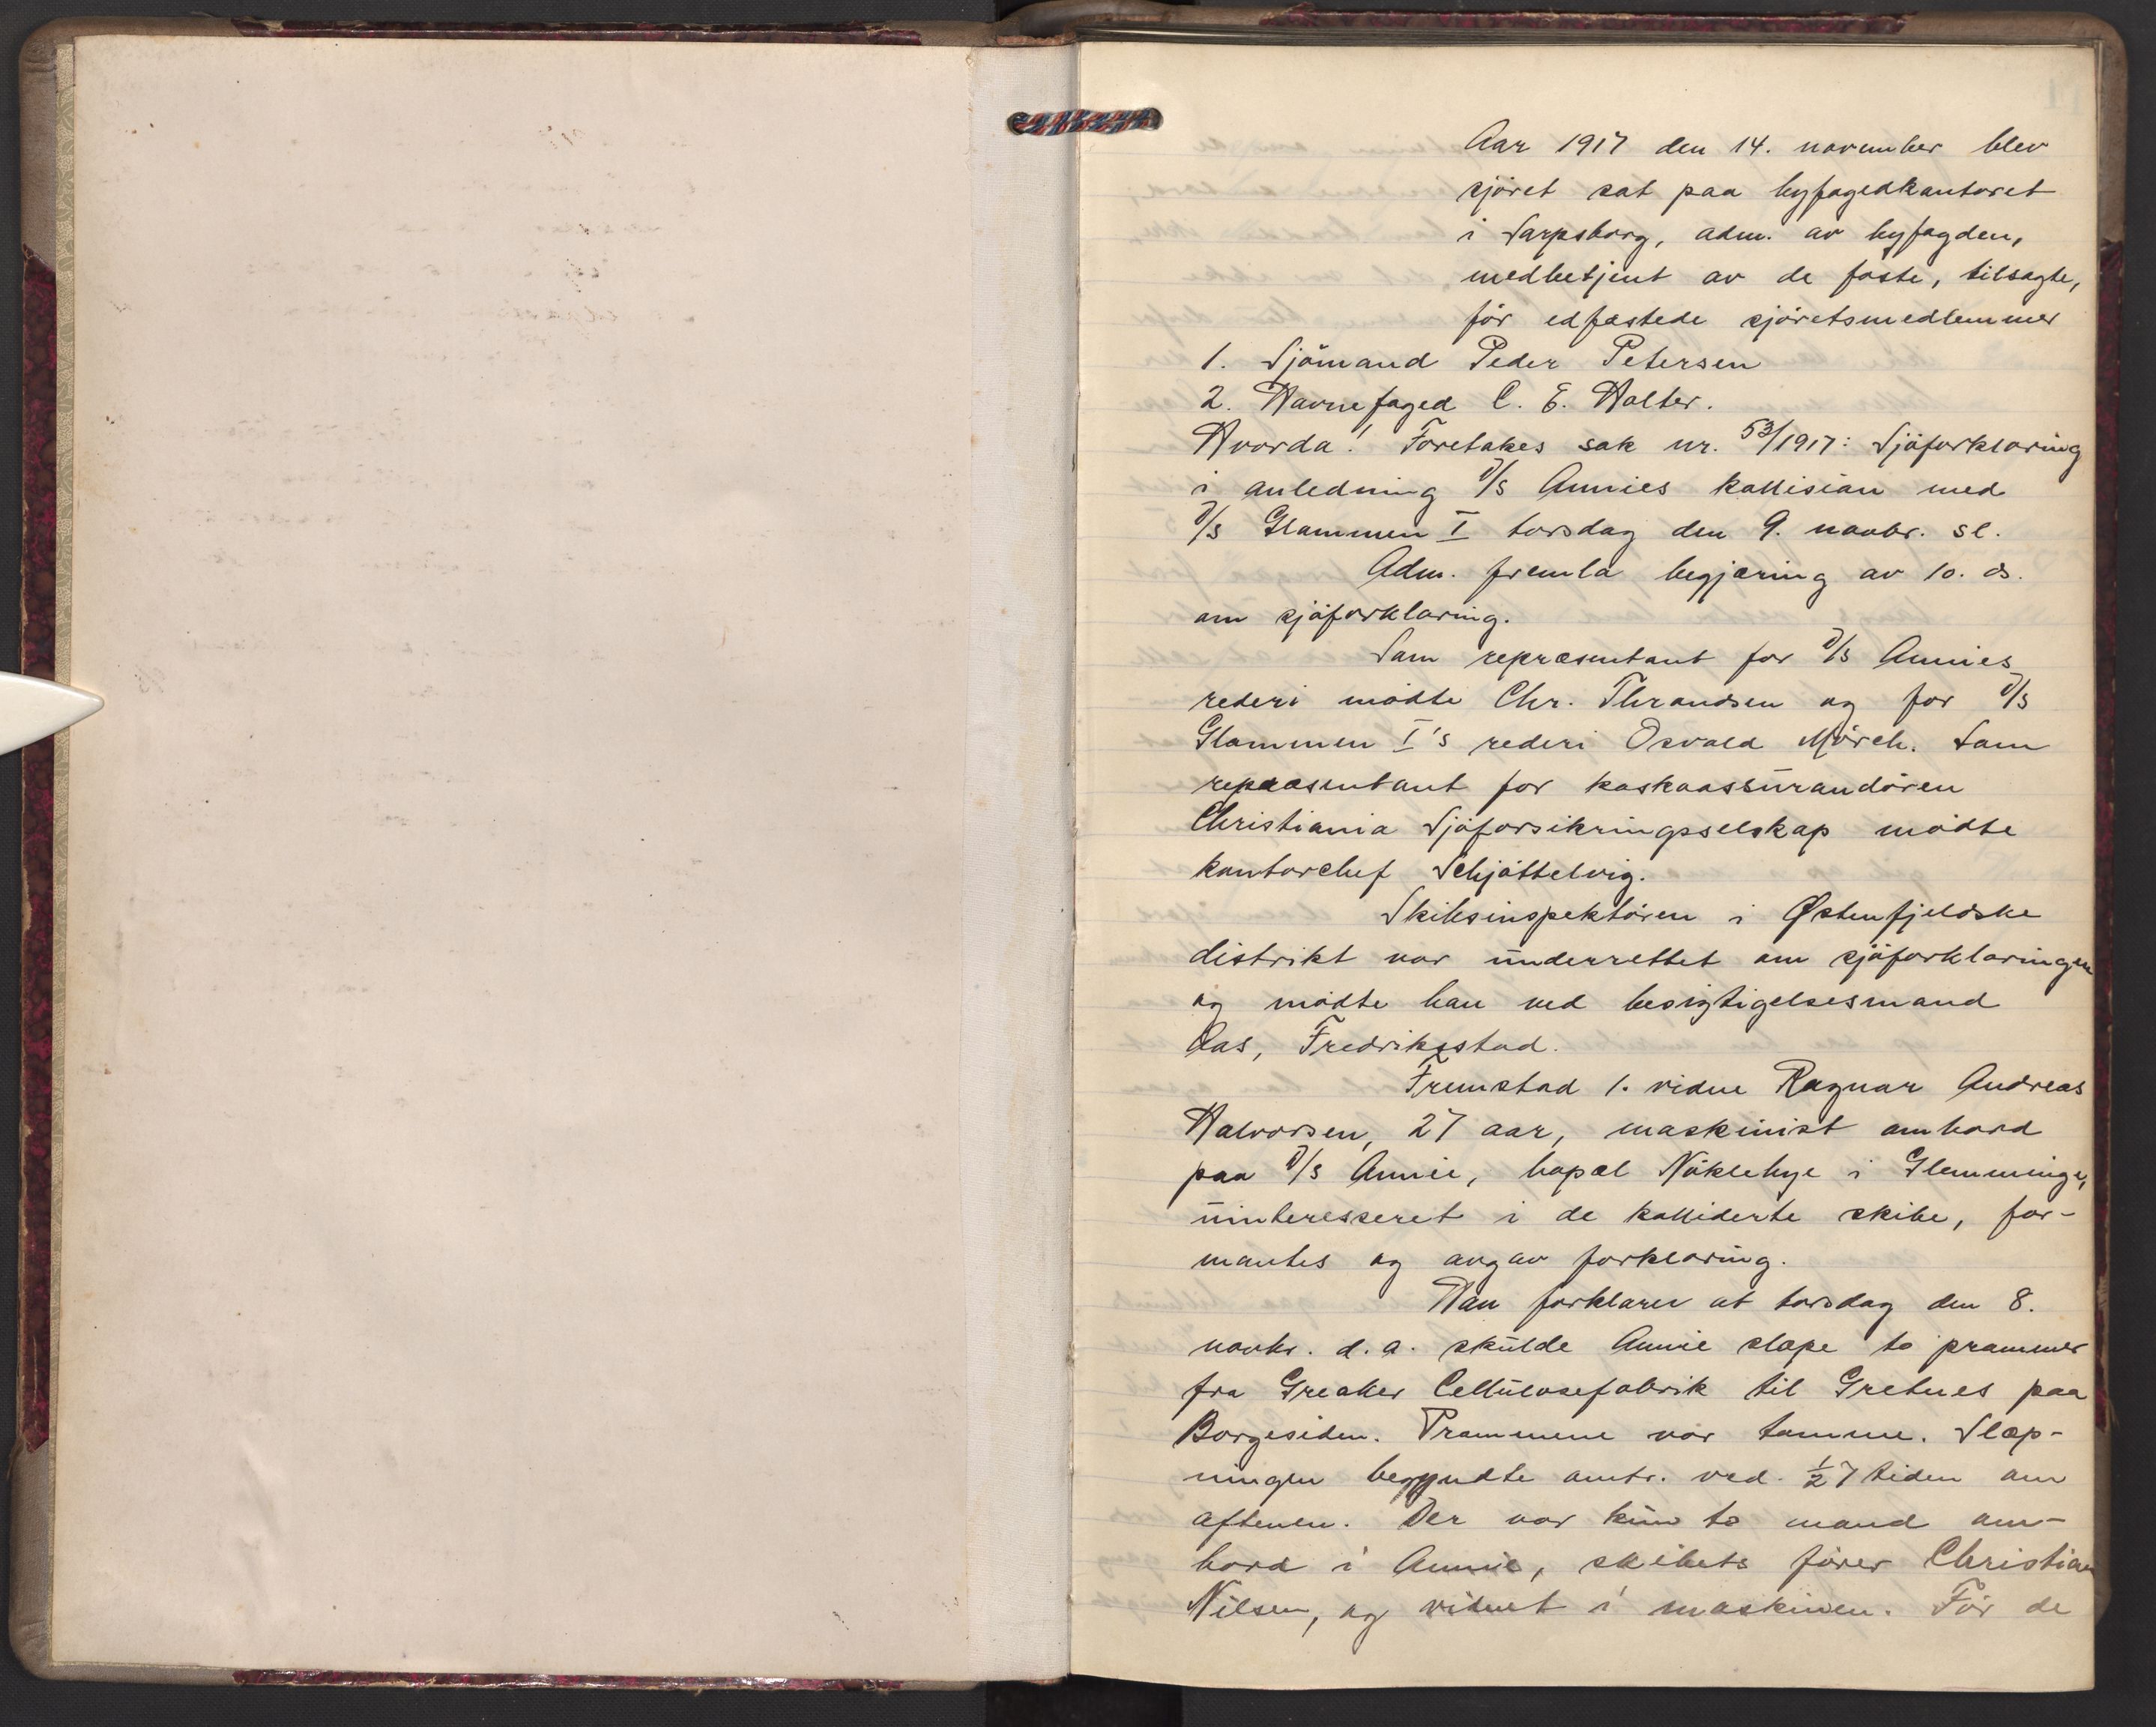 Aar 1917 den 14. november blev
sjöret sat paa byfogedkontoret
i Sarpsborg, adm. av byfogden,
medbetjent av de faste, tilsagte,
för edfæstede sjöretsmedlemmer
1. Sjömand Peder Petersen
2. Havnefoged C. E. Holter.
Hvorda! Foretakes sak nr. 53/1917: Sjöforklaring
i anledning D/S Annies kollision med
D/S Glommen I torsdag den 9. novbr. sl.
Adm. fremla begjæring av 10. ds.
om sjöforklaring.
Som repræsentant for D/S Annies
rederi mödte Chr. Thrandsen og for D/S
Glommen I's rederi Osvald Mörch. Som
repræsentant for kaskoassurandören
Christiania Sjöforsikringsselskap mödte
kontorchef Schjöttelvig.
Skibsinspektören i Østenfjeldske
distrikt var underrettet om sjöforklaringen
og mödte han ved besigtigelsesmand
Aas, Fredriksstad.
Fremstod 1. vidne Ragnar Andreas
Halvorsen, 27 aar, maskinist ombord
paa D/S Annie, bopæl Nöklebye i Glemminge,
uinteresseret i de kolliderte skibe, for-
mantes og avgav forklaring.
Han forklarer at torsdag den 8.
novbr. d.a. skulde Annie slæpe to prammer
fra Greaker Cellulosefabrik til Gretnes paa
Borgesiden. Prammene var tomme. Slæp-
ningen begyndte omtr. ved ½7 tiden om
aftenen. Der var kun to mand om-
bord i Annie, skibets förer Christian
Nilsen, og vidnet i maskinen. För de